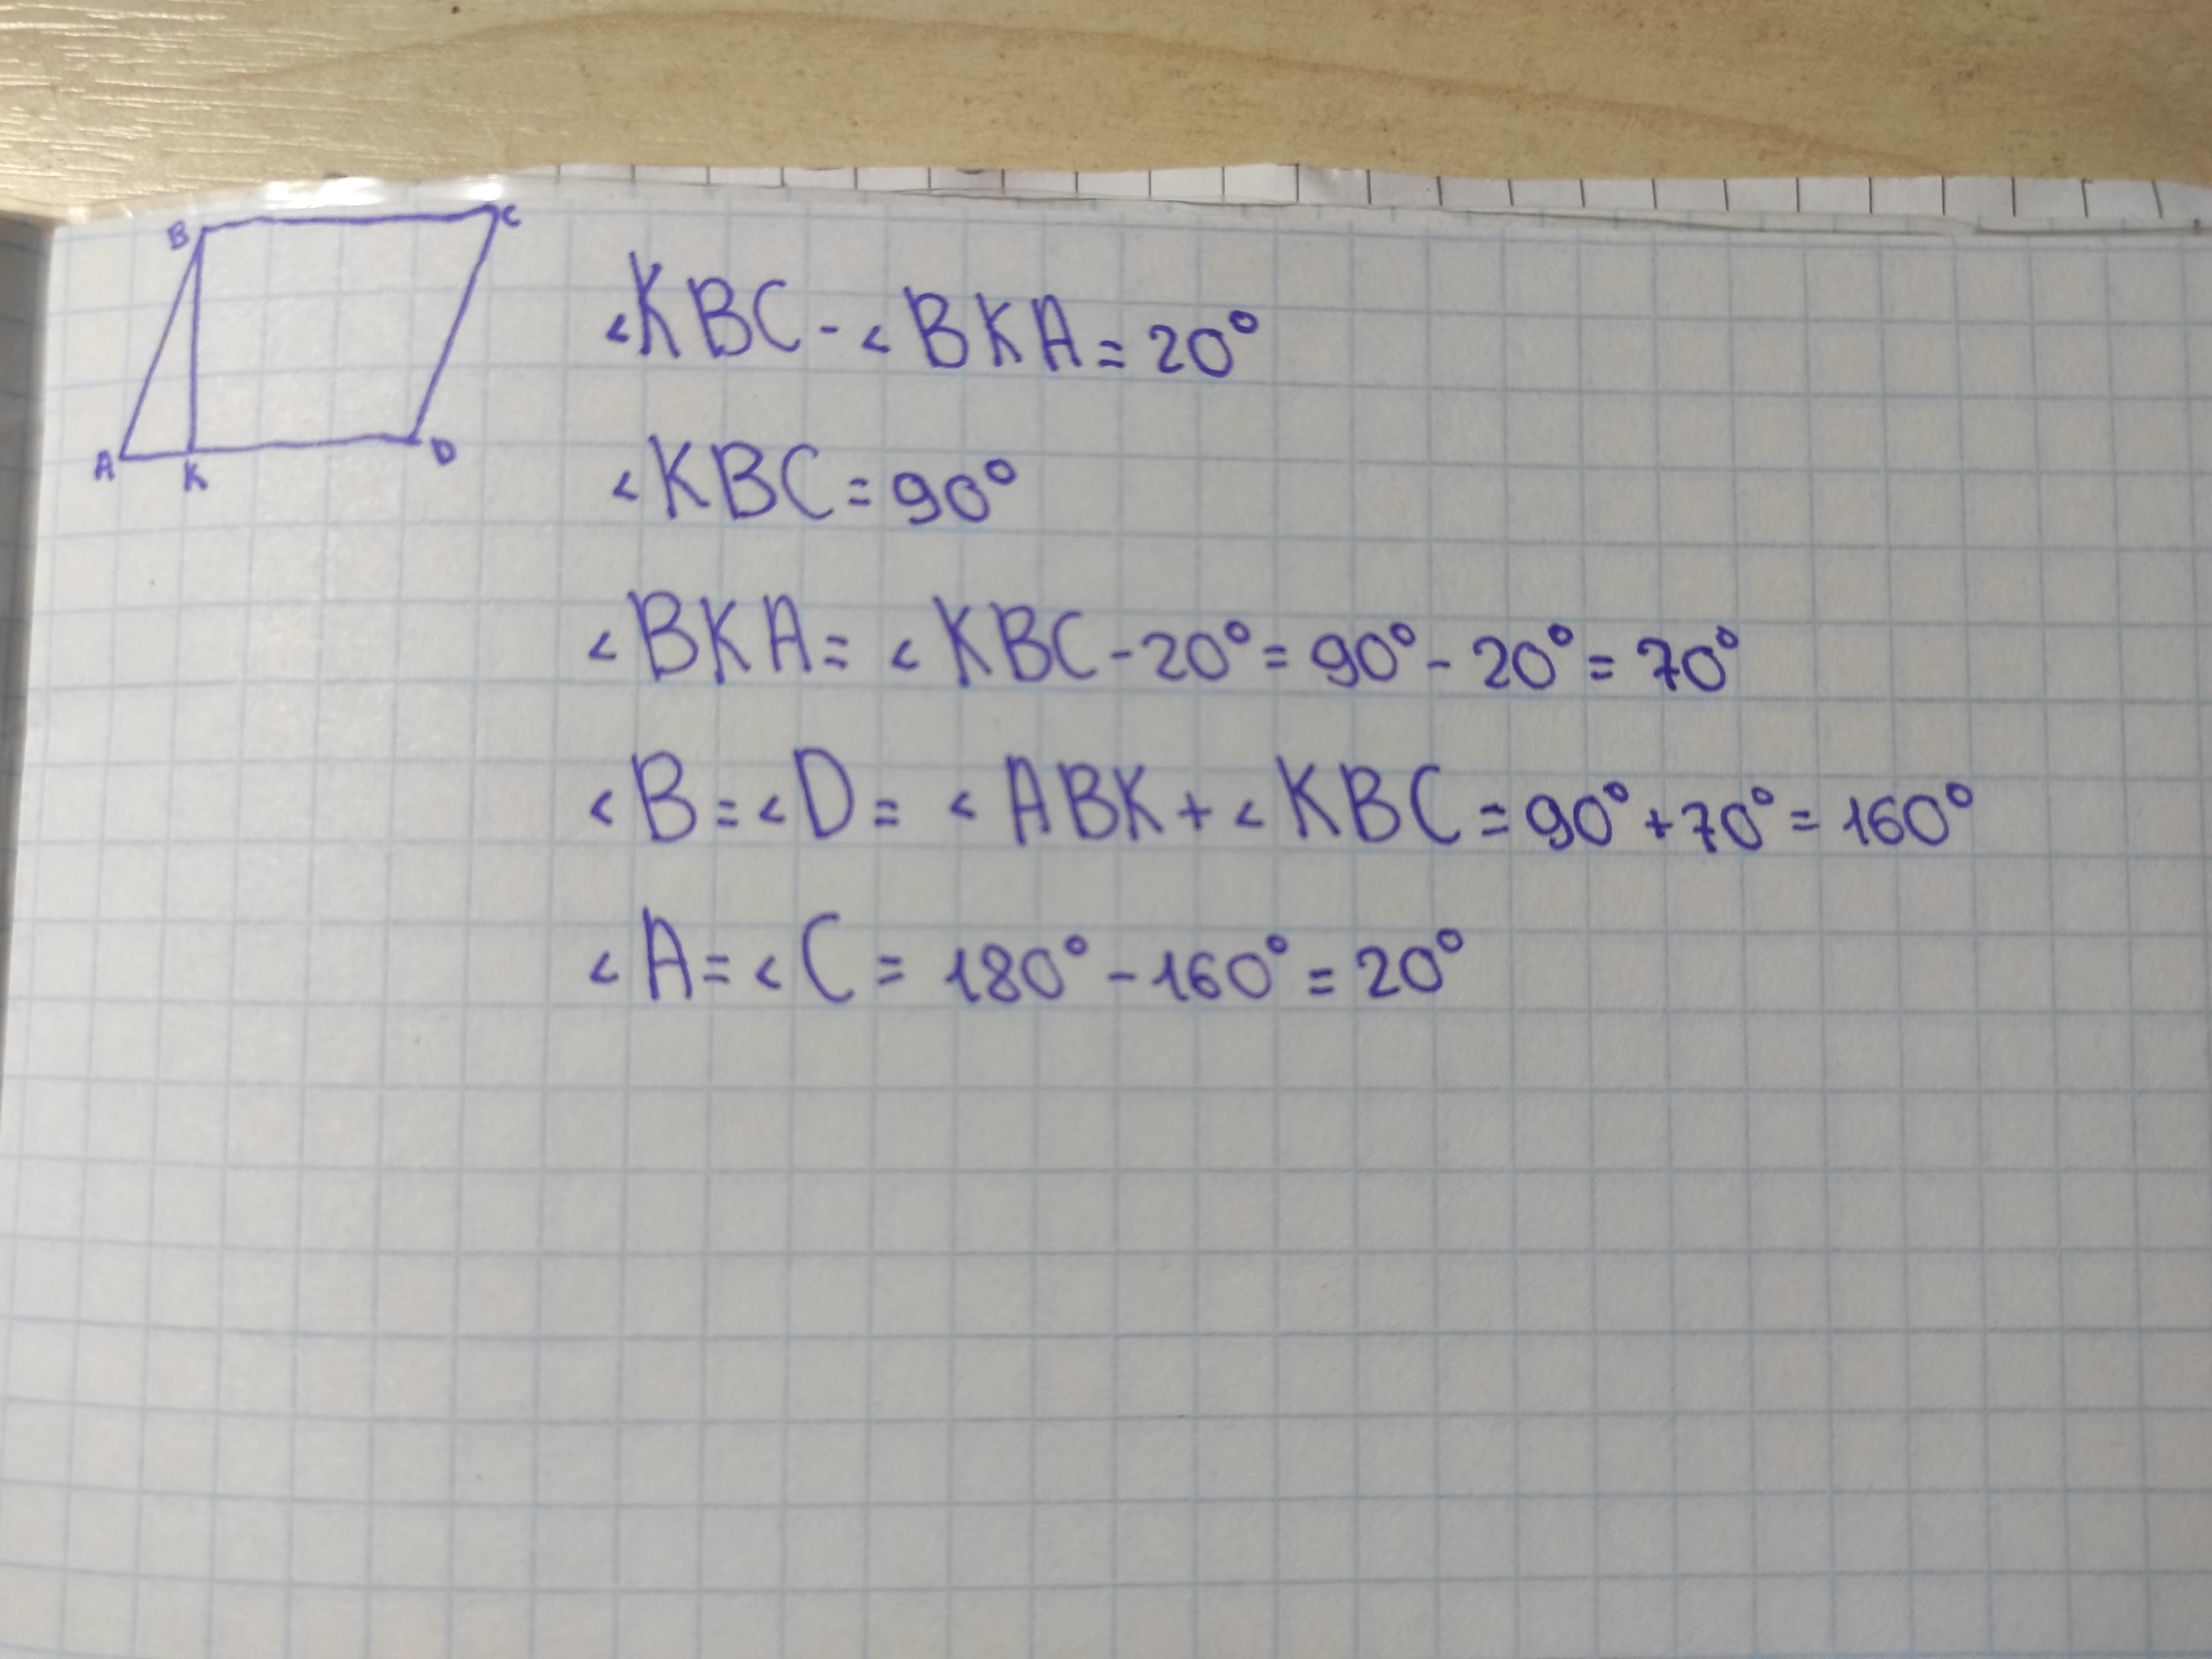 B C
A K D
<KBC - <BKA = 20°
<KBC = 90°
<BKA = <KBC - 20° = 90° - 20° = 70°
<B = <D = <ABK + <KBC = 90° + 70° = 160°
<A = <C = 180° - 160° = 20°